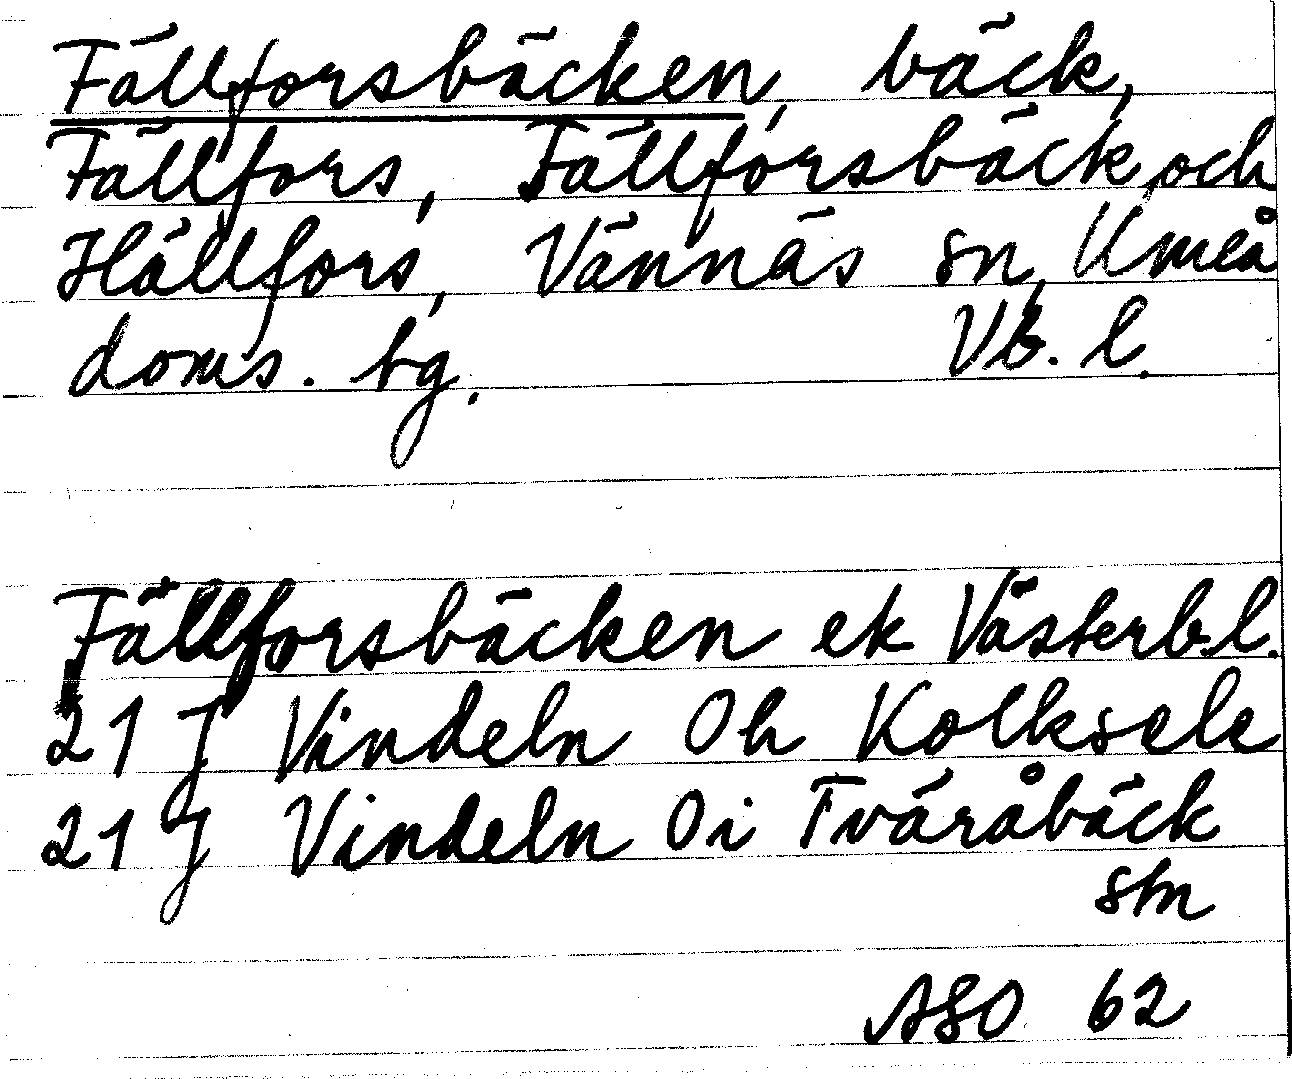 Fällforsbäcken, bäck,
Fällfors, Fällforsbäck och
Hällfors, Vännäs sn, Umeå
doms. bg. Vb. l.
Fällforsbäcken ek Västerb.l.
21 J Vindeln 0h Kolksele
21 J Vindeln 0i Tväråbäck
stn
ASO 62